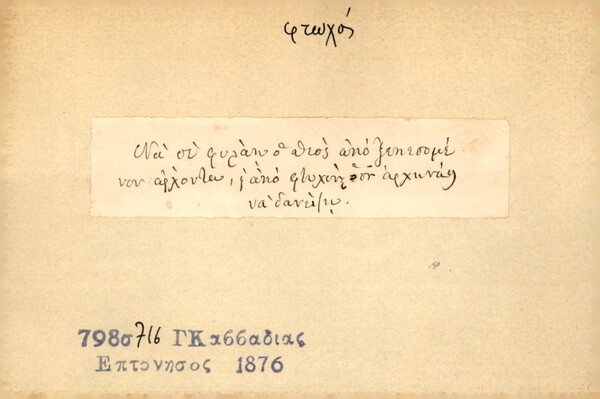 φτωχός
Νὰ σὲ φυλάῃ ὁ θεὸς ἀπὸ ξεπεσομέ
νον ἄρχοντα, ἀπὸ φτωχὸν ἀρχινάῃ
νὰ δανείζῃ.
798σ 716 ΓΚαββαδιας
Επτονησος 1876